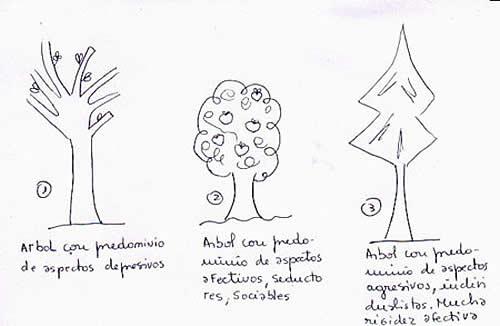 1
Arbol con predominio
de aspectos depresivos
2
Arbol con predo-
minio de aspectos
afectivos, seducto
res, sociables
3
Arbol con predo-
minio de aspectos
agresivos, indivi
dualistas. Mucha
rigidez afectiva